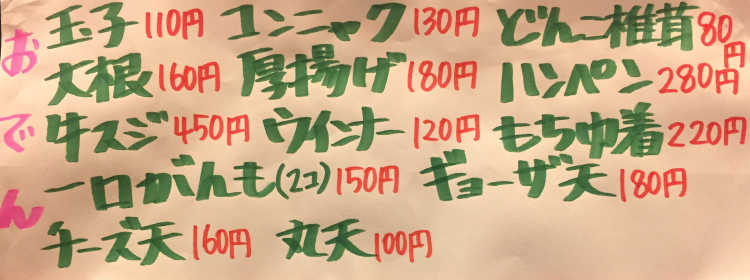 おでん
玉子 110円 コンニャク 130円 どんこ椎茸 80円
大根 160円 厚揚げ 180円 ハンペン 280円
牛スジ 450円 ウインナー 120円 もち巾着 220円
一口がんも(2コ) 150円 ギョーザ天 180円
チーズ天 160円 丸天 100円